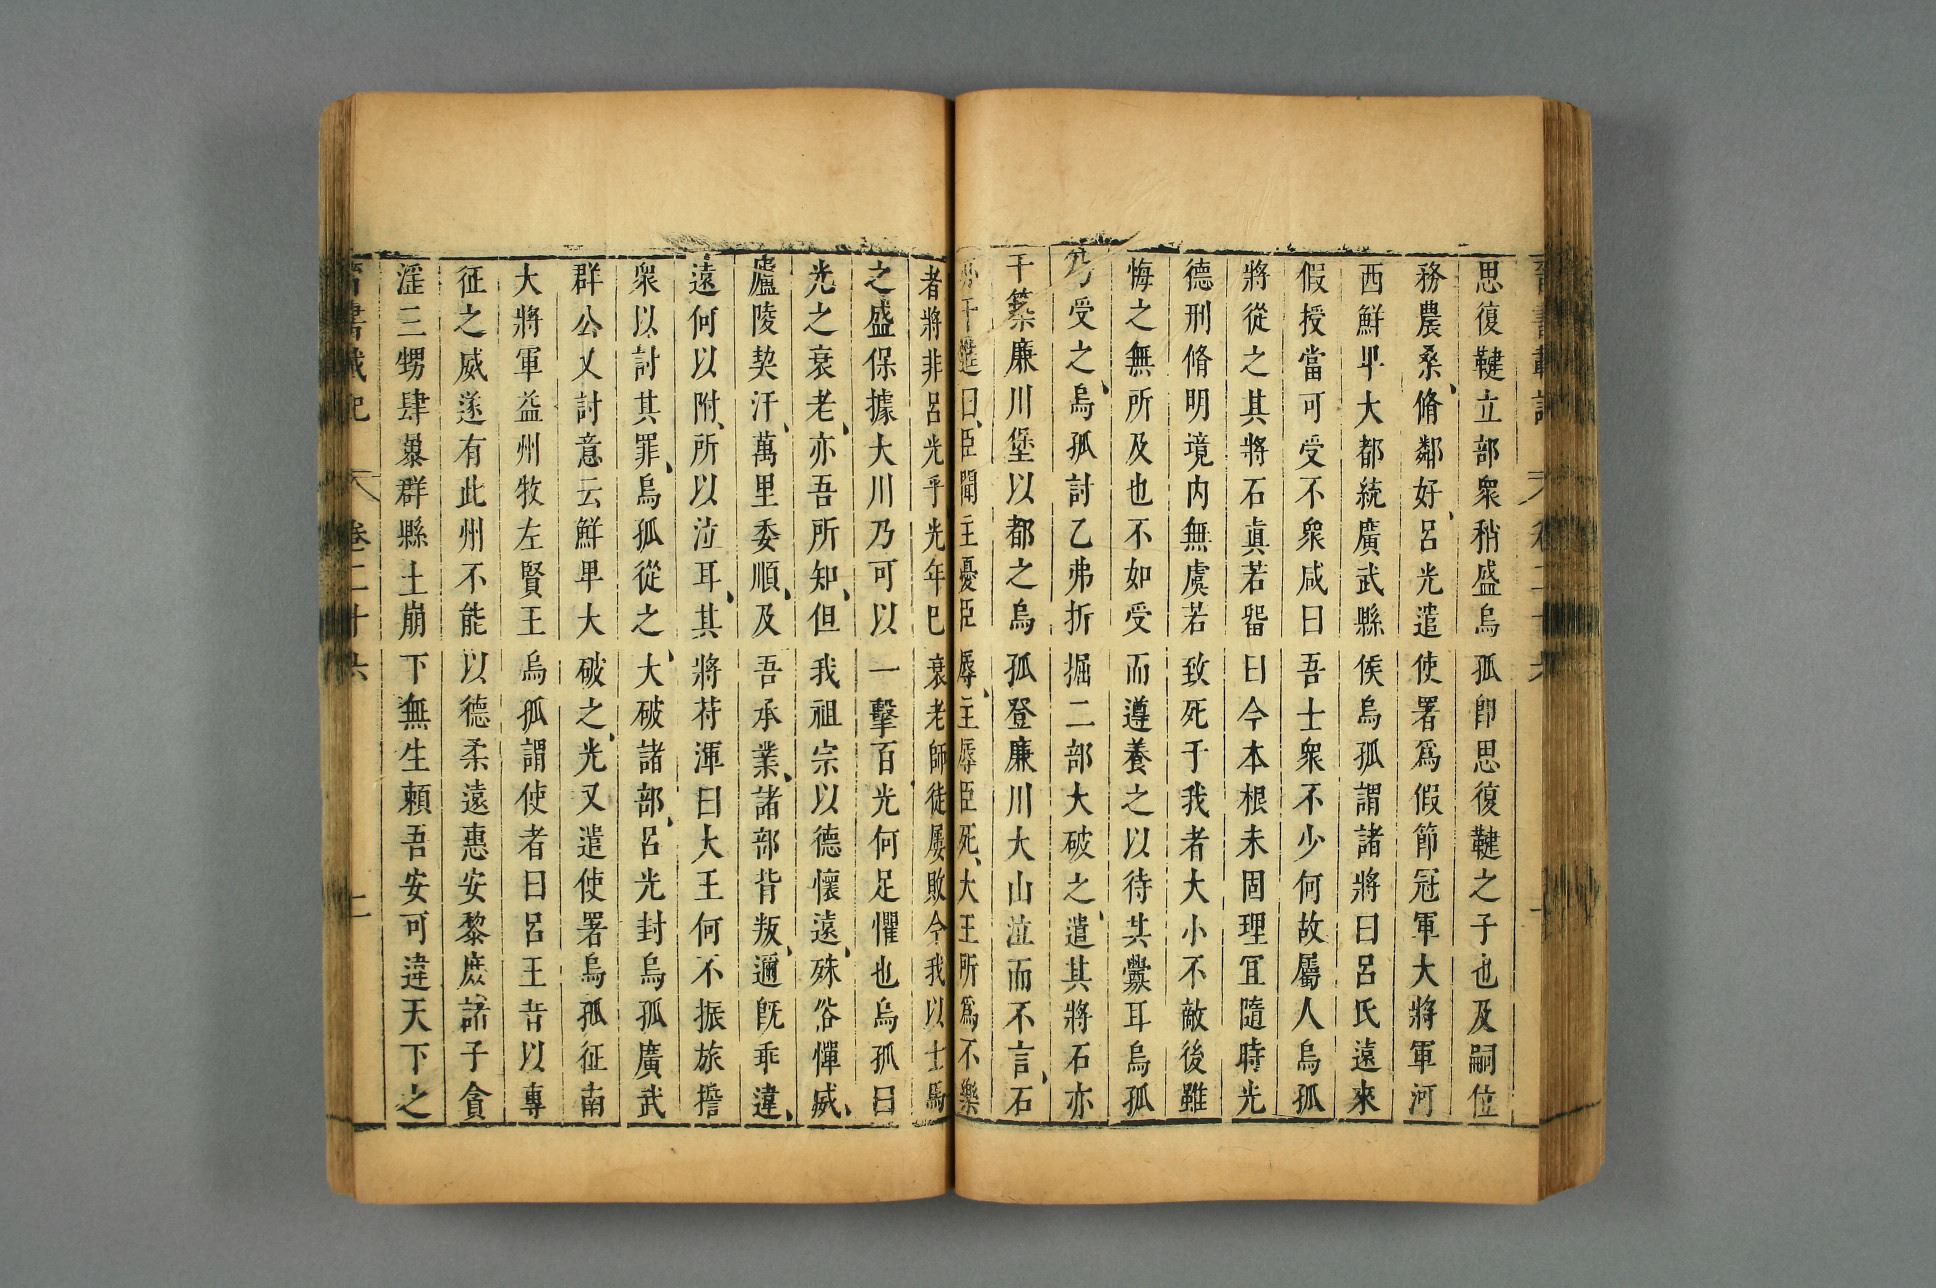 晉書載記 卷二十六
思復鞬立部衆稍盛烏孤卽思復鞬之子也及嗣位
務農桑脩鄰好呂光遣使署爲假節冠軍大將軍河
西鮮卑大都統廣武縣侯烏孤謂諸將曰呂氏遠來
假授當可受不衆咸曰吾士衆不少何故屬人烏孤
將從之其將石眞若畱曰今本根未固理宜隨時光
德刑脩明境内無虞若致死于我者大小不敵後雖
悔之無所及也不如受而遵養之以待其釁耳烏孤
乃受之烏孤討乙弗折掘二部大破之遣其將石亦
干築廉川堡以都之烏孤登廉川大山泣而不言石
亦干進曰臣聞主憂臣辱主辱臣死大王所爲不樂
者將非呂光乎光年已衰老師徒屢敗今我以士馬
之盛保據大川乃可以一擊百光何足懼也烏孤曰
光之衰老亦吾所知但我祖宗以德懷遠殊俗憚威
廬陵契汗萬里委順及吾承業諸部背叛邇旣乖違
遠何以附所以泣耳其將苻渾曰大王何不振旅誓
衆以討其罪烏孤從之大破諸部呂光封烏孤廣武
群公又討意云鮮卑大破之光又遣使署烏孤征南
大將軍益州牧左賢王烏孤謂使者曰呂王昔以專
征之威遂有此州不能以德柔遠惠安黎庶諸子貪
淫三甥肆暴群縣土崩下無生賴吾安可違天下之
晉書載記 卷二十六 二